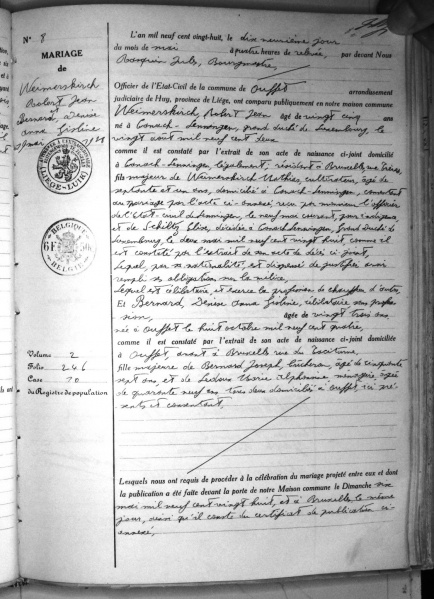 N° 8
MARIAGE
de
Weimerskirch
Robert Jean
Bernard, Denise
Anna Gislène
BELGIQUE
6F
BELGIË
Volume 2
Folio 246
Case 10
du Registre de population
L'an mil neuf cent vingt-huit, le dix neuvième jour
du mois de mai à quatre heures de relevée, par devant Nous
Jules, Bourgmestre,
Officier de l'Etat-Civil de la commune de Ouffet arrondissement
judiciaire de Huy, province de Liége, ont comparu publiquement en notre maison commune
Weimerskirch, Robert Jean âgé de vingt cinq ans
né à Canach-Lenningen, grand duché de Luxembourg, le
vingt août mil neuf cent deux
comme il est constaté par l'extrait de son acte de naissance ci-joint domicilié
à Canach-Lenningen légalement, résident à Bruxelles, rue
fils majeur de Weimerskirch Mathias, cultivateur, âgé de
septante et un ans, domicilié à Canach-Lenningen, consentant
au mariage par l'acte ci-annexé, reçu par monsieur l'officier
de l'état civil de Lenningen, le neuf mai courant,
et de Schiltz Elise, décédée à Canach Lenningen, grand Duché de
Luxembourg, le deux mai mil neuf cent vingt huit, comme il
est constaté par l'extrait de son acte de décès ci-joint,
Lequel, par sa nationalité, est dispensé de justifier avoir
rempli ses obligations sur la milice
Lequel est célibataire et exerce la profession de chauffeur d'autos,
Et Bernard Denise Anna Gislène, célibataire sans profes-
sion, âgée de vingt trois ans
née à Ouffet le huit octobre mil neuf cent quatre,
comme il est constaté par l'extrait de son acte de naissance ci-joint domiciliée
à Ouffet, avant à Bruxelles rue du
fille majeure de Bernard Joseph, âgé de cinquante
sept ans, et de Ledoux Marie Alphonsine ménagère, âgée
de quarante neuf ans tous deux domiciliés à Ouffet, ici pré-
sents et consentant,
Lesquels nous ont requis de procéder à la célébration du mariage projeté entre eux et dont
la publication a été faite devant la porte de notre Maison commune le Dimanche
mai mil neuf cent vingt huit, et à Bruxelles le même
jour, ainsi qu'il conste du certificat de publication ci-
annexé,